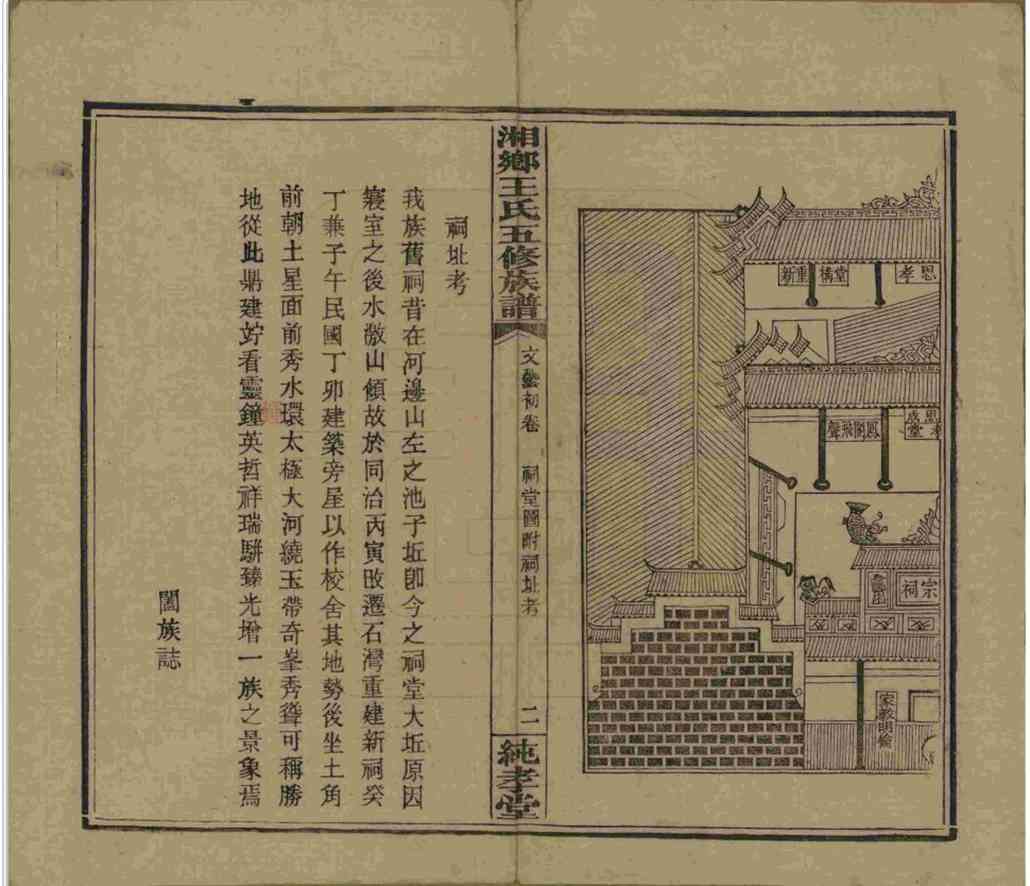 恩孝
堂構重新
鳳閣飛聲
宗祠
家敎明倫
湘鄉王氏五修族譜
文藝初卷
祠堂圖附祠址考
二
純孝堂
祠址考
我族舊祠昔在河邊山左之池子坵卽今之祠堂大坵原因
寢室之後水敝山傾故於同治丙寅改遷石灣重建新祠癸
丁兼子午民國丁卯建築旁屋以作校舍其地勢後坐土角
前朝土星面前秀水環太極大河繞玉帶奇峯秀聳可稱勝
地從此鼎建竚看靈鐘英哲祥瑞駢臻光增一族之景象焉
闔族誌